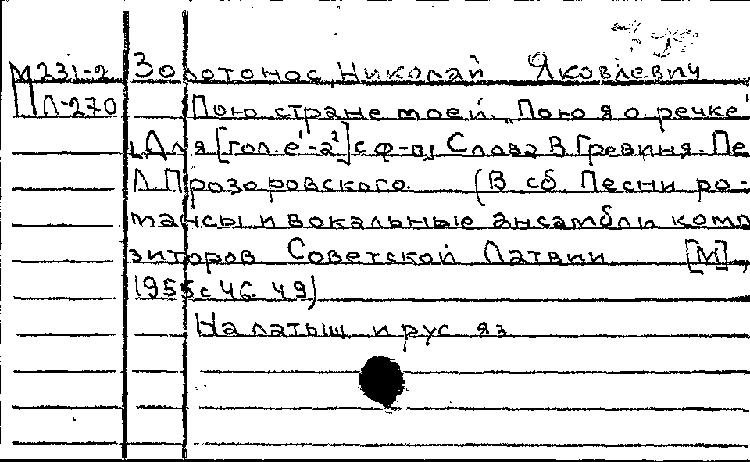 М231-2 Золотонос, Николай Яковлевич
П Л-270 Пою стране моей. "Пою я о речке"
[Для [гол. е¹-а²] с ф-п.] Слова В. Гревиня. Пе
Л. Прозоровского. (В сб. Песни ро-
мансы и вокальные ансамбли компо
зиторов Советской Латвии [М],
1955 с 46 49)
На латыш. и рус яз